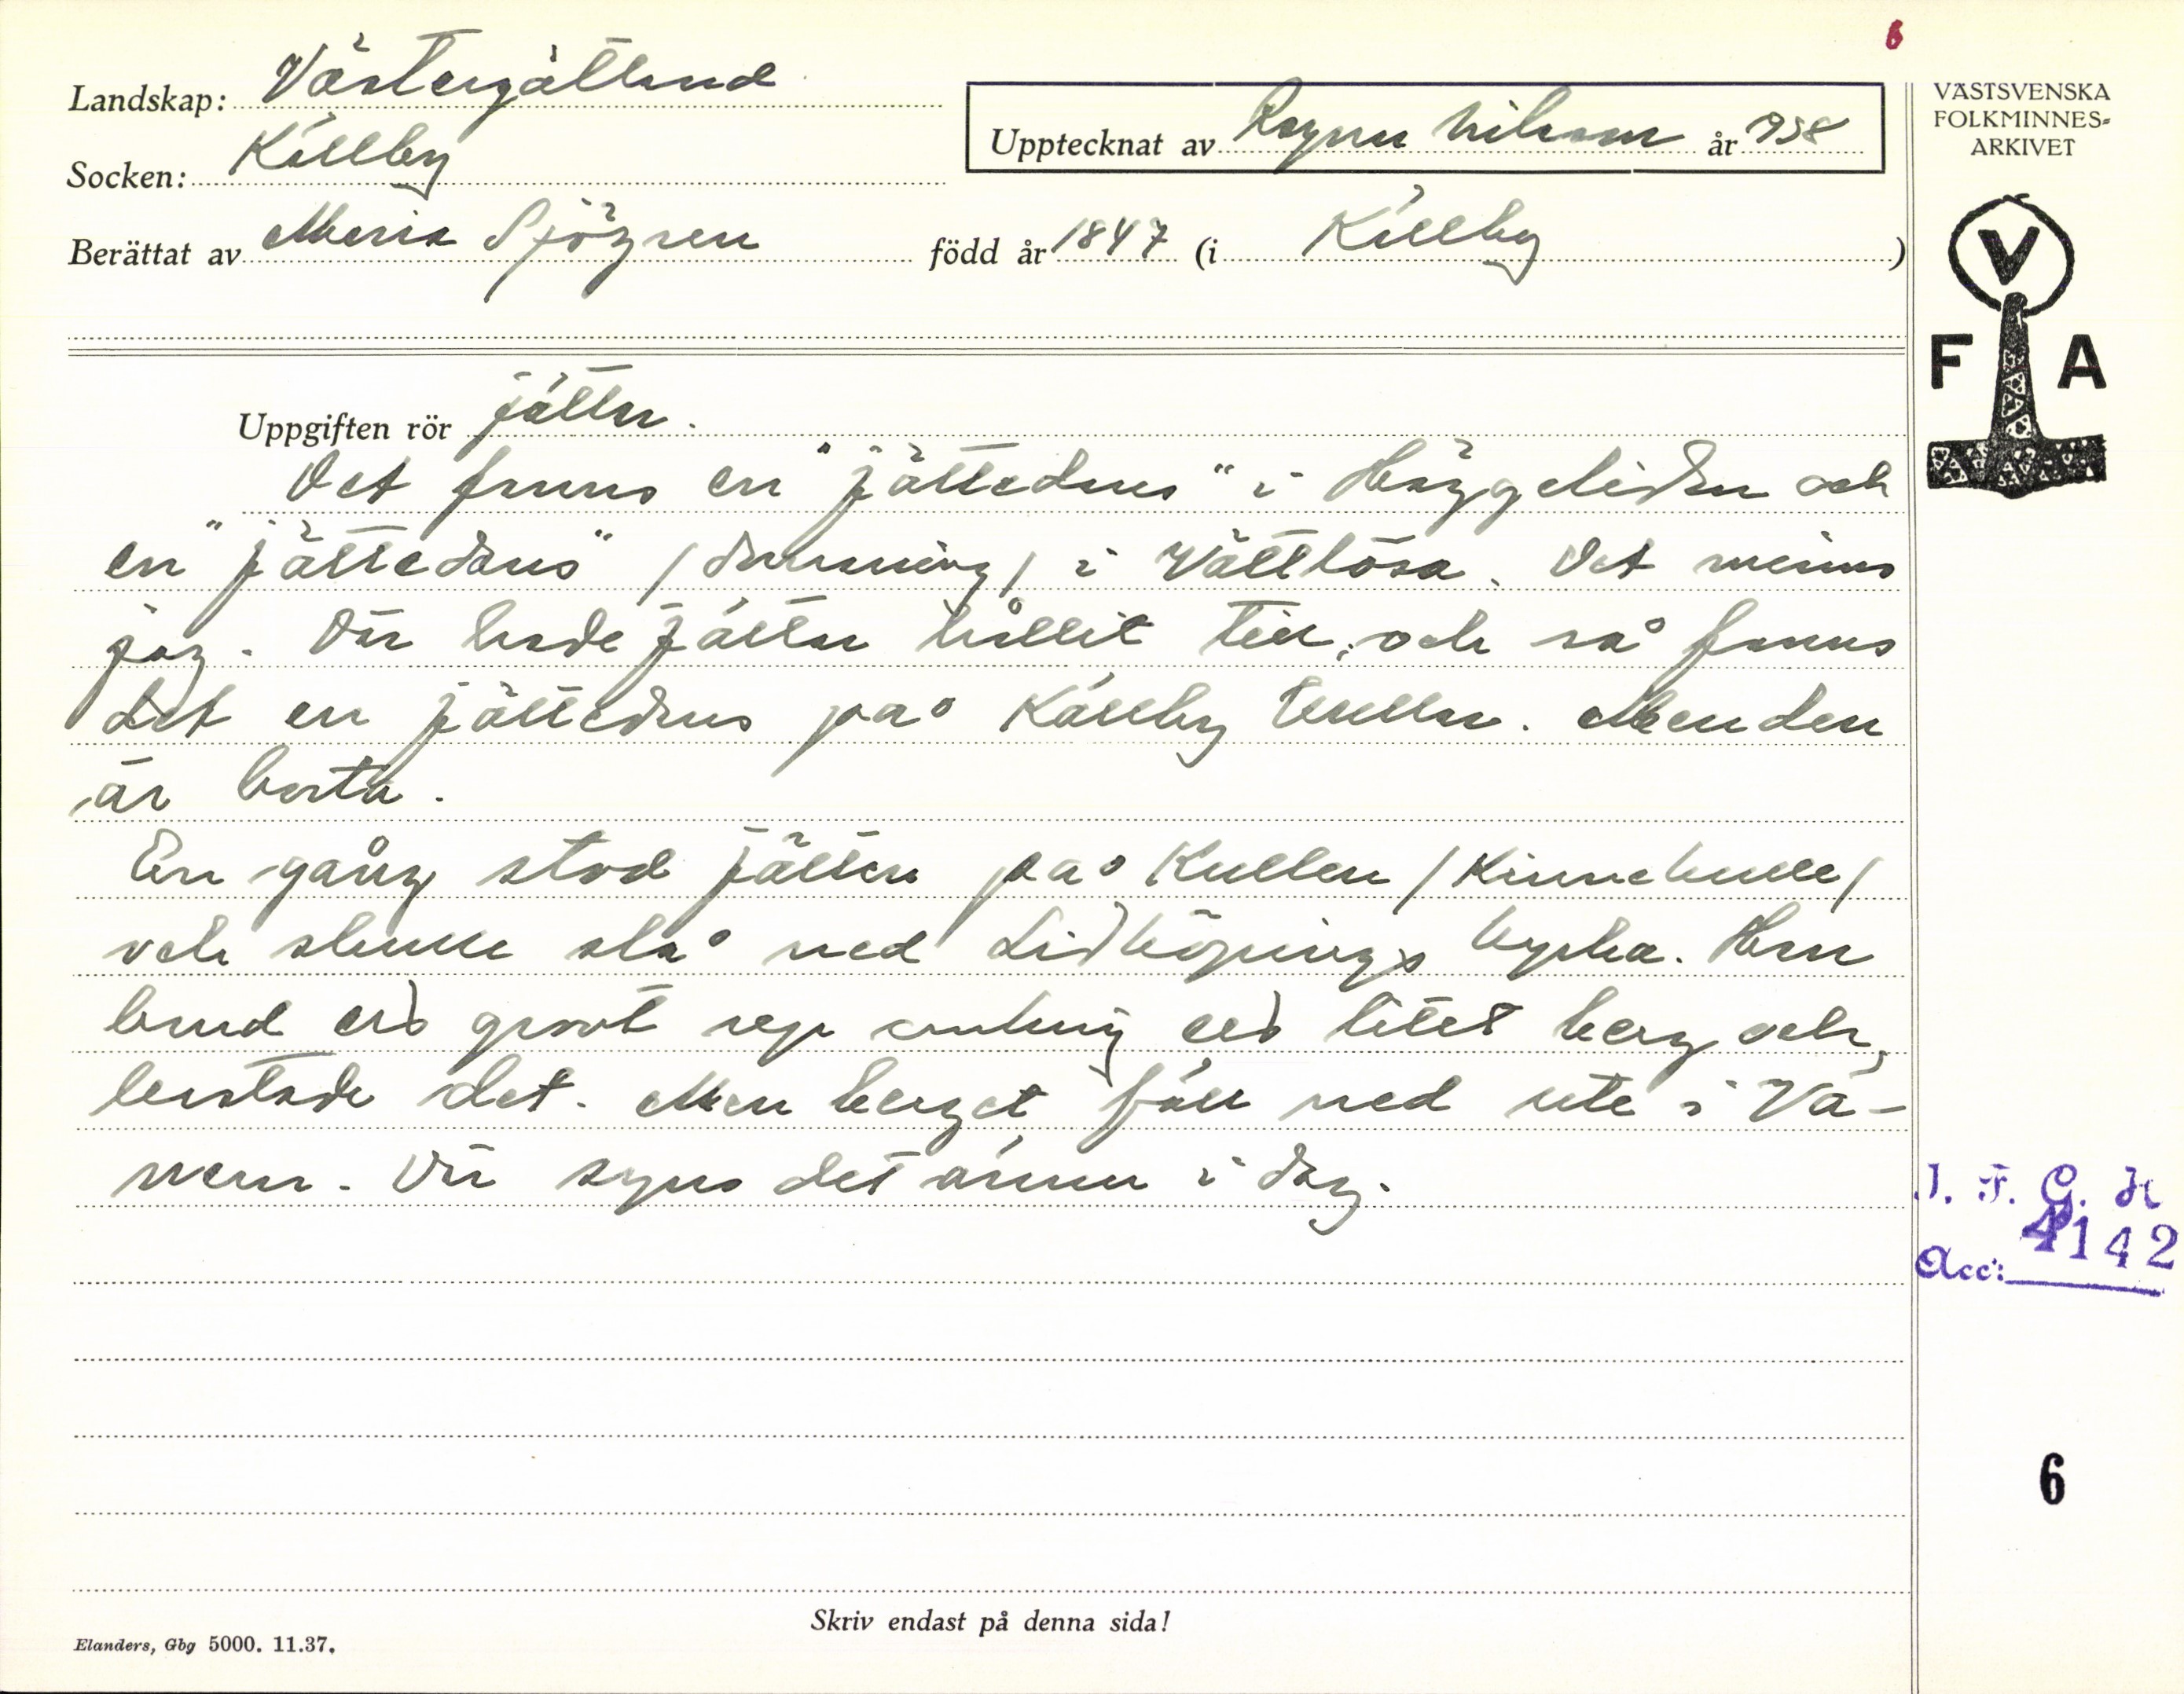 6
Landskap: Västergötland
Socken: Källby
Upptecknat av Ragnar Nilsson år 1938
Berättat av Maria Sjögren född år 1847 (i Källby)
VÄSTSVENSKA
FOLKMINNES-
ARKIVET
V
F A
Uppgiften rör jätten.
Det fanns en "jättedans" i Häggeliden och
en "jättedans" /danning/ i Vättlösa. Det minns
jag. Där hade jätten hållit till, och så fanns
det en jättedans på Källby kullen. Men den
är borta.
En gång stod jätten på Kullen /Kinnekulle/
och skulle slå ned Lidköpings kyrka. Han
band ett grovt rep omkring ett litet berg och
kastade det. Men berget föll ned ute i Vä-
nern. Där syns det ännu i dag.
I. F. G. H
4142
Acc:
6
Skriv endast på denna sida!
Elanders, Gbg 5000. 11.37.